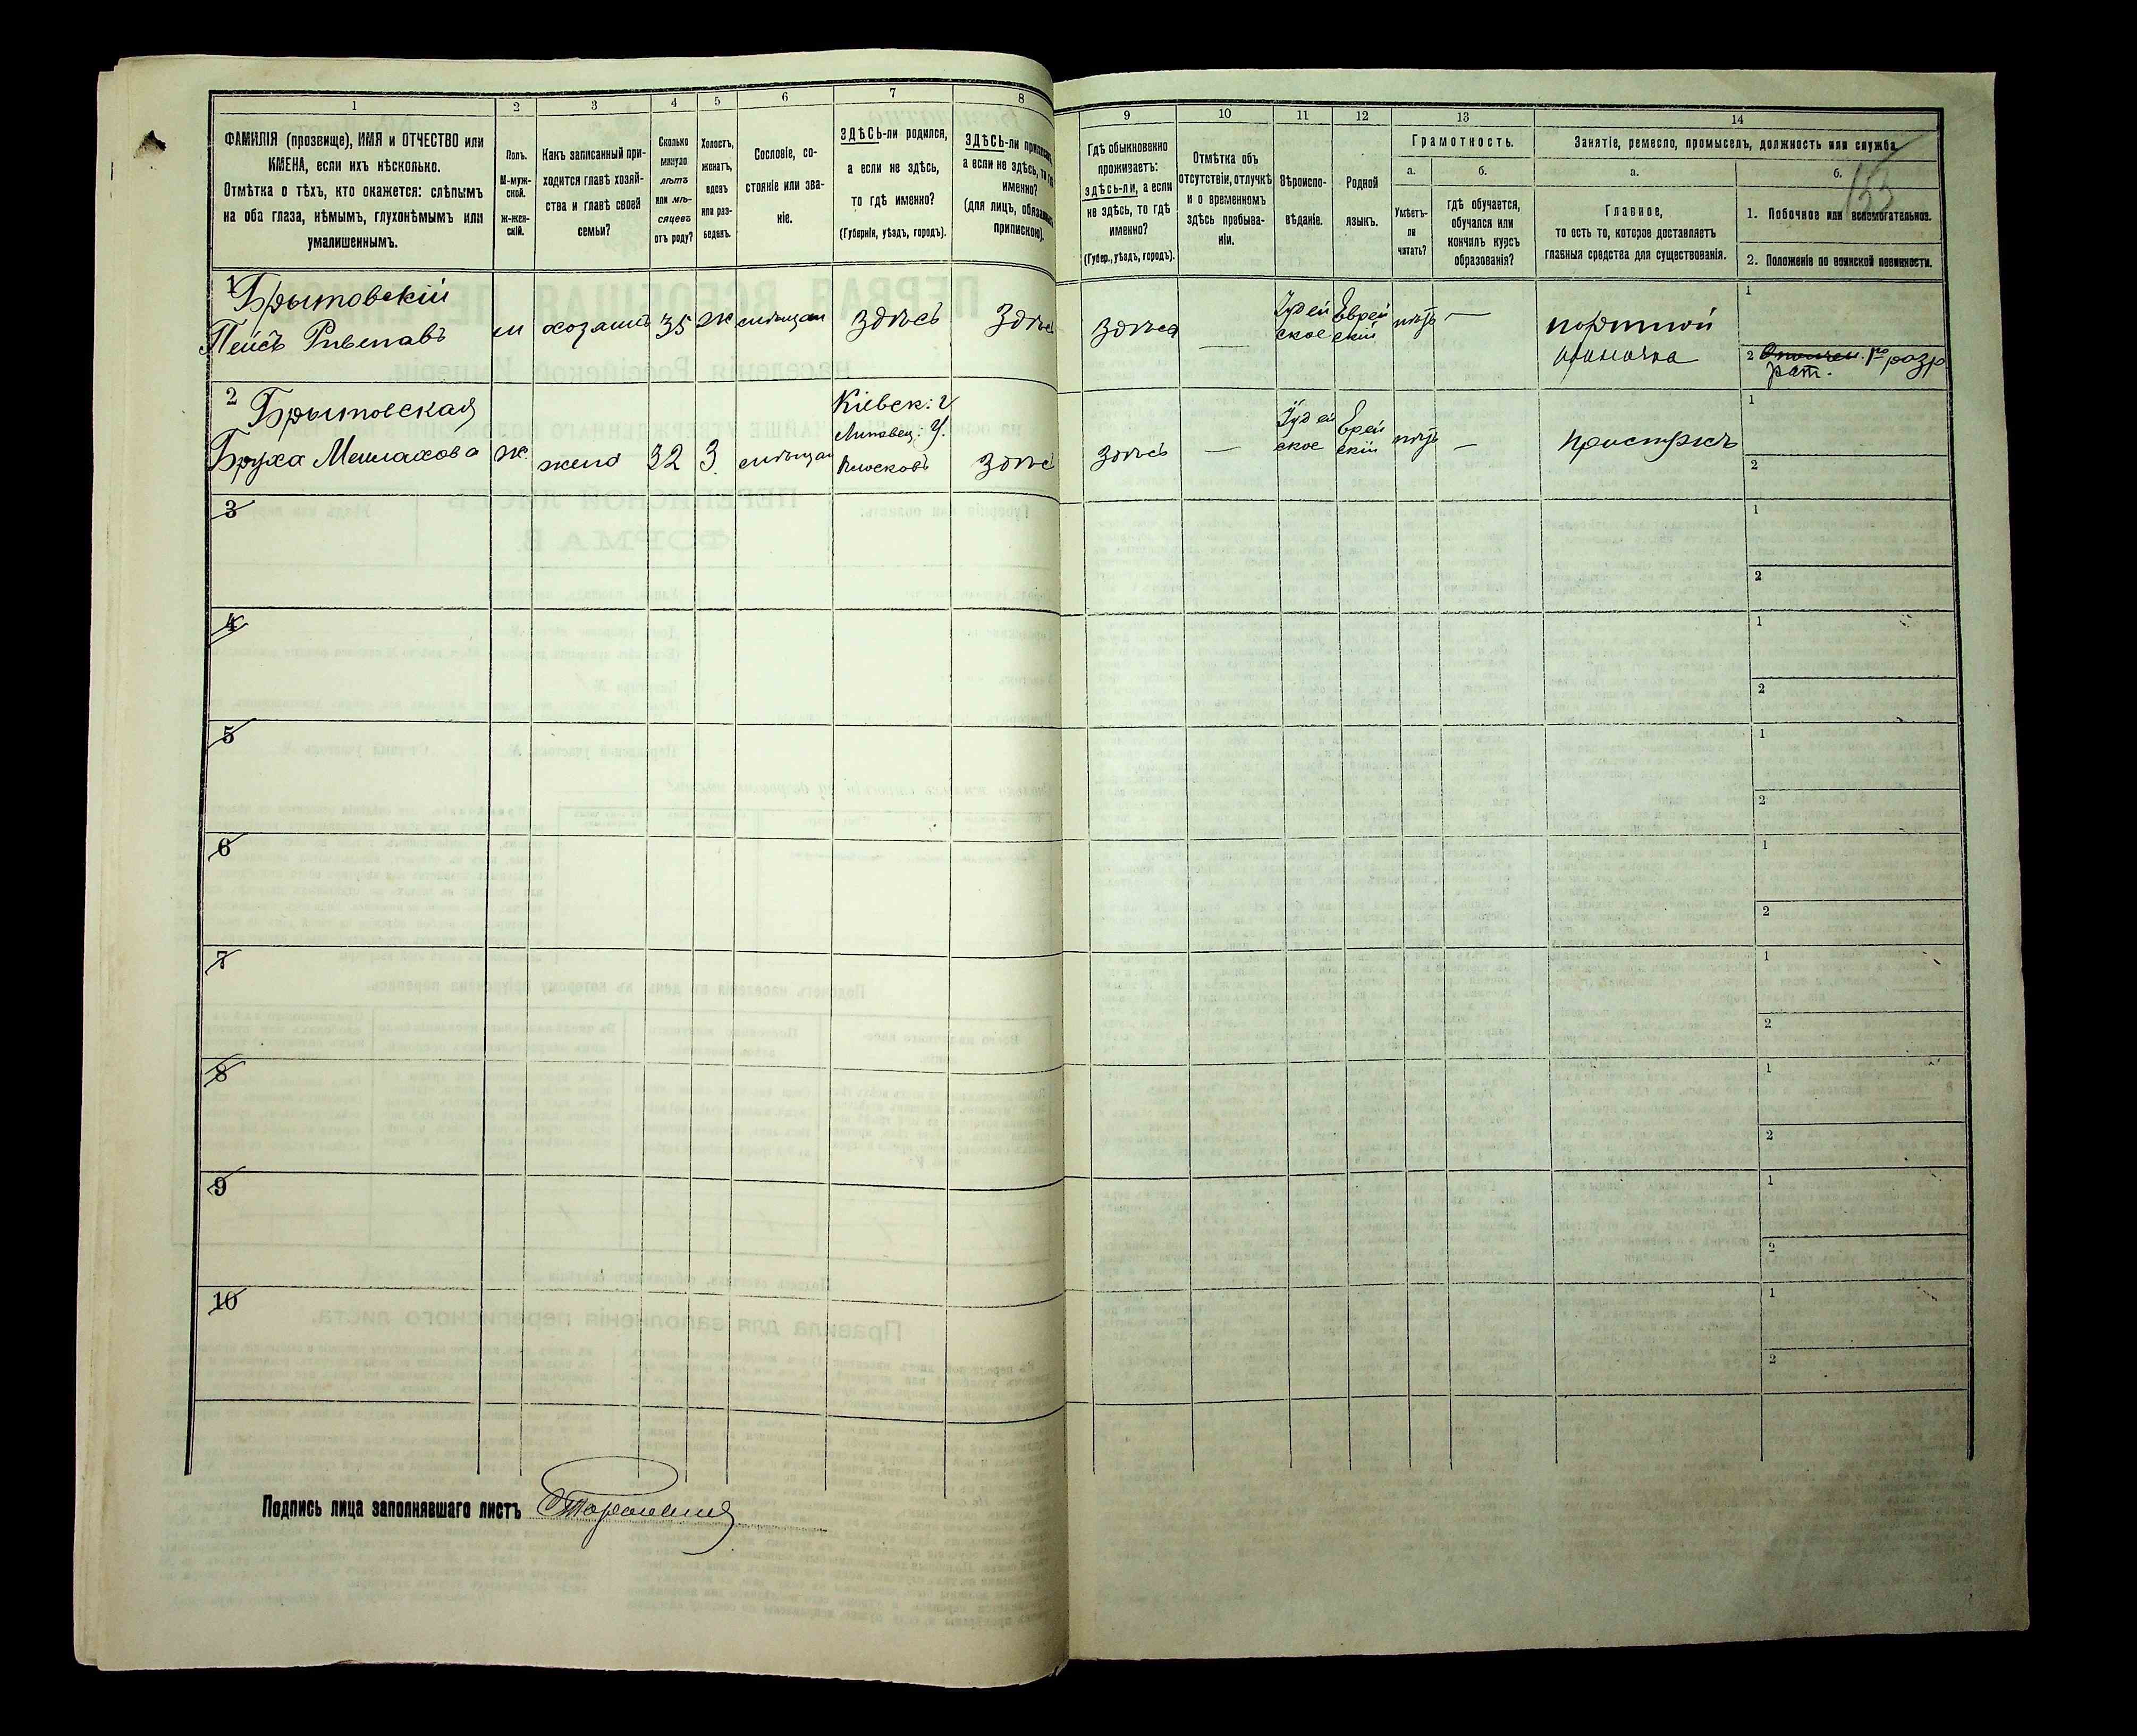 1
2
3
4
5
6
7
8
ФАМИЛІЯ (прозвище), ИМЯ и ОТЧЕСТВО или
ИМЕНА, если ихъ нѣсколько.
Отмѣтка о тѣхъ, кто окажется: слѣпымъ
на оба глаза, нѣмымъ, глухонѣмымъ или
умалишеннымъ.
Полъ.
М-муж-
ской.
Ж-жен-
скій.
Какъ записанный при-
ходится главѣ хозяй-
ства и главѣ своей
семьи?
Сколько
минуло
лѣтъ
или мѣ-
сяцевъ
отъ роду?
Холостъ,
женатъ,
вдовъ
или раз-
веденъ.
Сословіе, со-
стояніе или зва-
ніе.
ЗДѢСЬ-ли родился,
а если не здѣсь,
то гдѣ именно?
(Губернія, уѣздъ, городъ).
ЗДѢСЬ-ли
а если не здѣсь,
именно?
(для лицъ,
припискою).
9
10
11
12
13
14
Гдѣ обыкновенно
проживаетъ:
здѣсь-ли, а если
не здѣсь, то гдѣ
именно?
(Губер., уѣздъ, городъ).
Отмѣтка объ
отсутствіи, отлучкѣ
и о временномъ
здѣсь пребыва-
ніи.
Вѣроиспо-
вѣданіе.
Родной
языкъ.
Грамотность.
а.
б.
Умѣетъ-
ли
читать?
гдѣ обучается,
обучался или
кончилъ курсъ
образованія?
Занятіе, ремесло, промыселъ, должность или служба.
а.
б.
153
Главное,
то есть то, которое доставляетъ
главныя средства для существованія.
1. Побочное или вспомогательное.
2. Положеніе по воинской повинности.
1
Брытовскій
Пейсъ
м
хозяинъ
35
ж
мѣщан
здѣсь
Здѣсь
здѣсь
—
Іудей
ское
Еврей
скій
нѣтъ
—
портной
1
2
разр
рат.
2
Брытовская
Бруха
ж.
жена
32
З.
мѣщан
Кіевск: г
Липовец: У.
Здѣсь
здѣсь
—
Іудей
ское
Еврей
скій
нѣтъ
—
1
2
3
1
2
4
1
2
5
1
2
6
1
2
7
1
2
8
1
2
9
1
2
10
1
2
Подпись лица заполнявшаго листъ